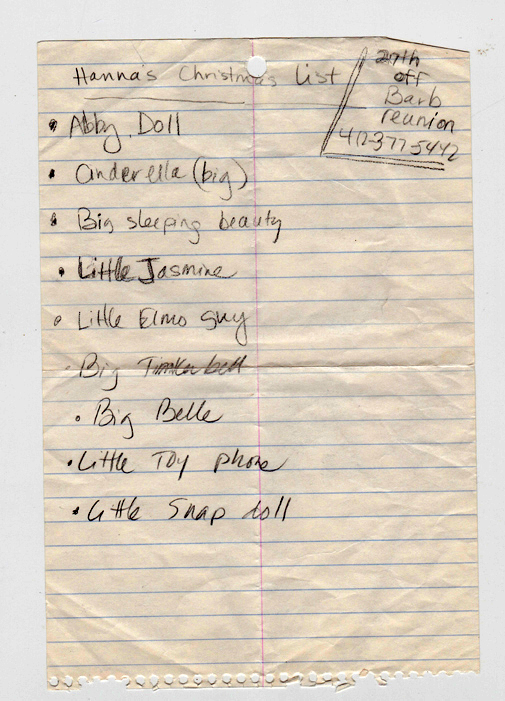 Hanna's Christmas List
29th
off
Barb
reunion
412-377-5442
• Abby Doll
• Cinderella (big)
• Big sleeping beauty
• Little Jasmine
• Little Elmo guy
• Big Tinkerbell
• Big Belle
• Little Toy phone
• Little Snap doll